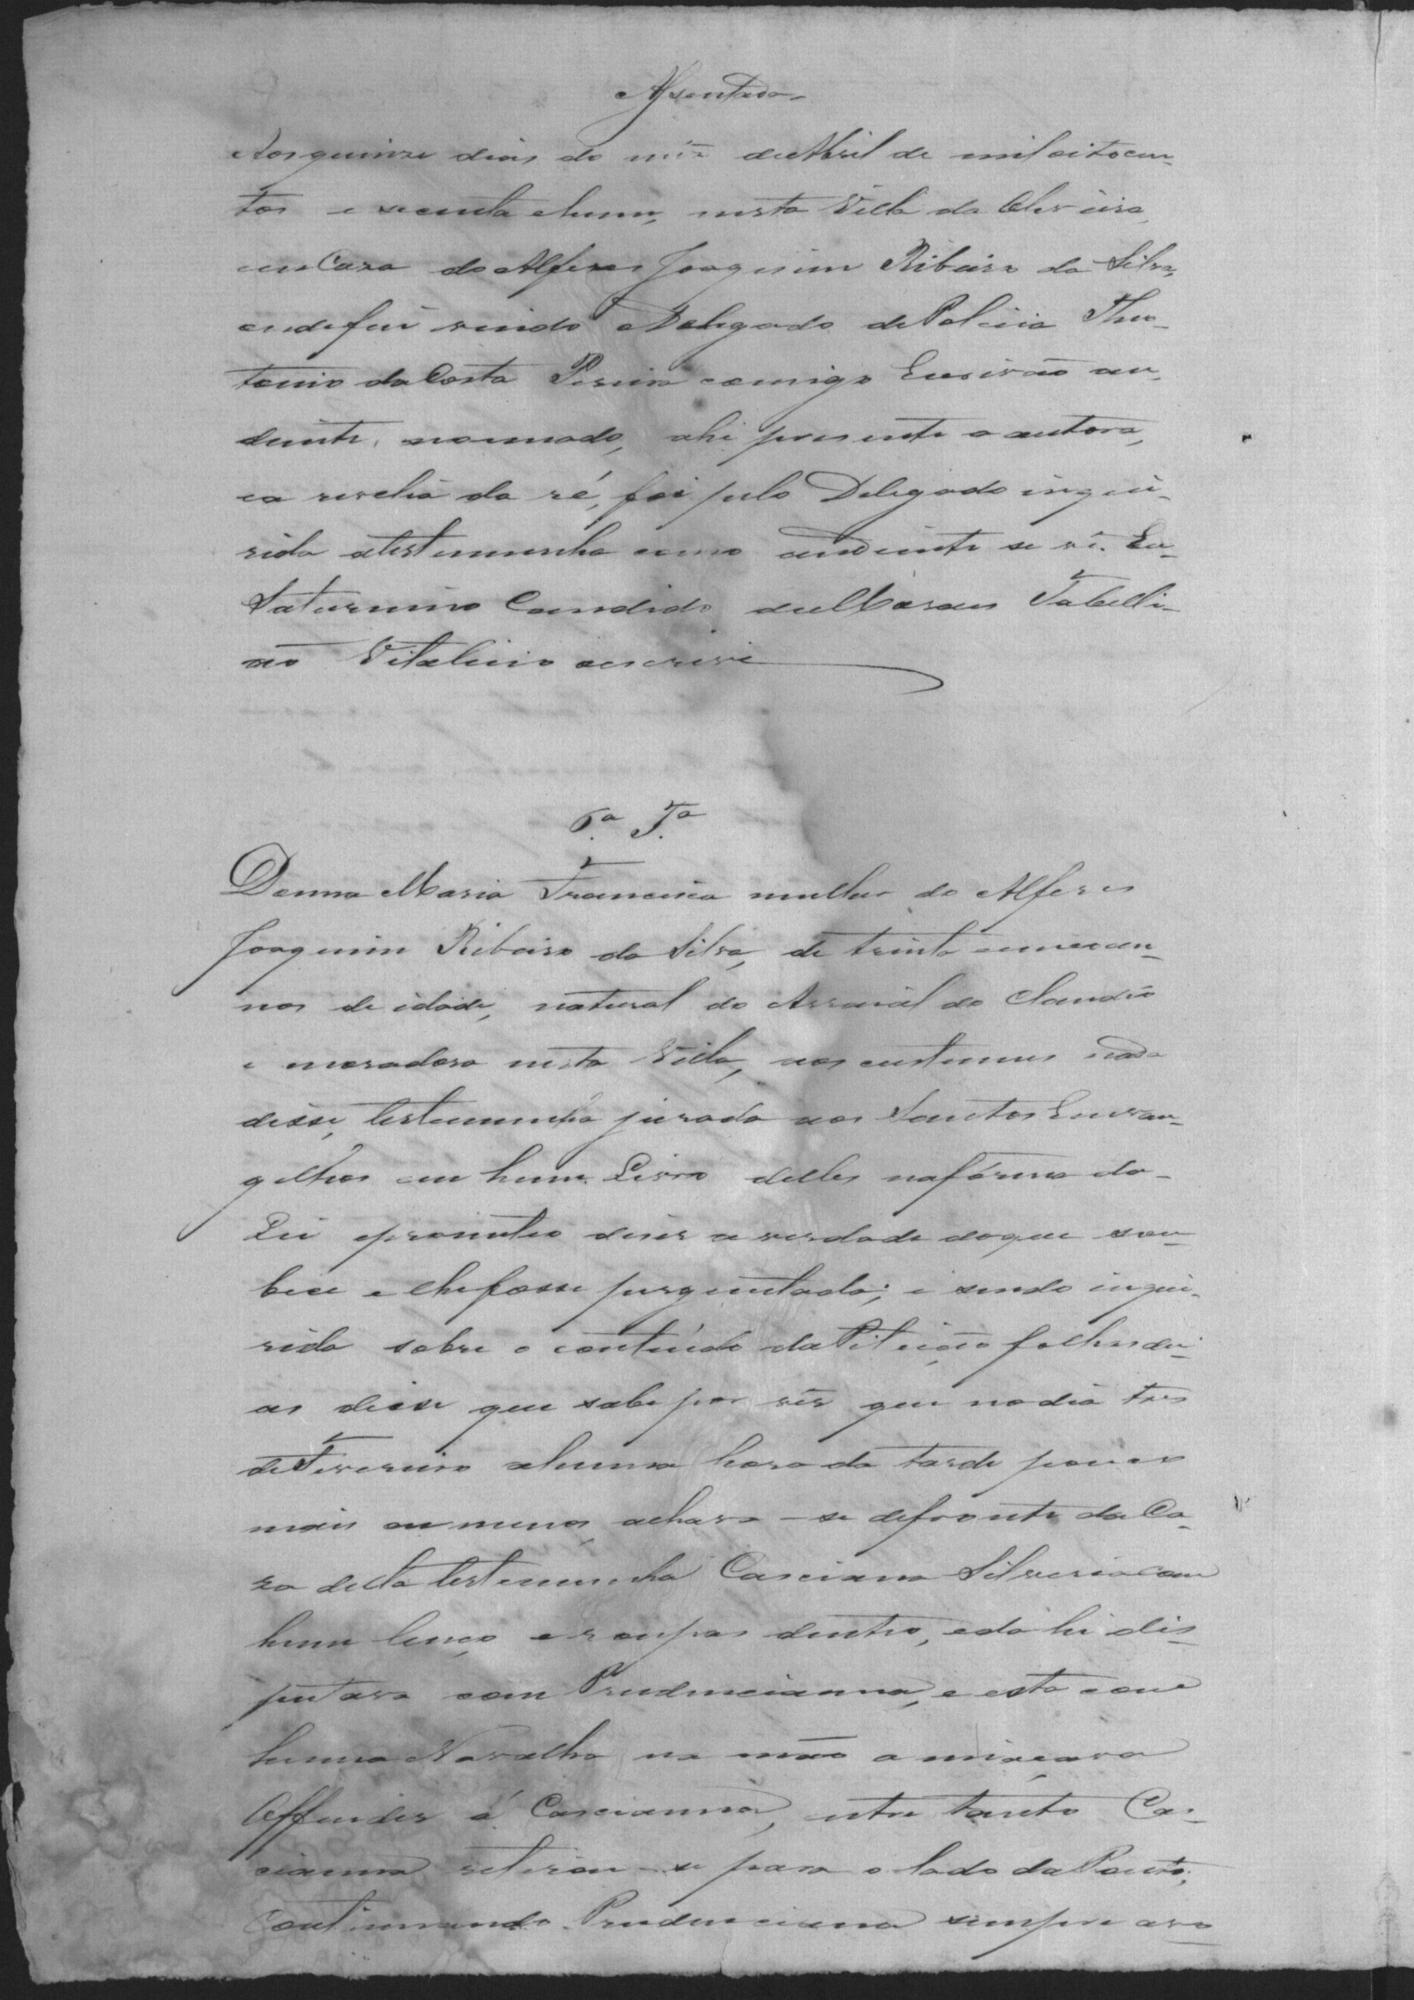 Assentada
Aos quinze dias do mês de Abril de mil oito cen-
tos e secenta e hum, nesta Villa da Oliveira,
em Caza do Alferes Joaquim Ribeiro da Silva,
onde foi vindo o Delegado de Policia Theo-
tonio da Costa Pereira comigo Escrivão au-
diante nomiado, ahi presente a autora,
e a revelia da ré, foi pelo Delegado inqui-
rida a testemunha como audiante se vê. Eu
Saturnino Candido de Moraes Tabelli-
ão Vitalicio o escrivi
6.ª T.ª
Donna Maria Francisca mulher do Alferes
Joaquim Ribeiro da Silva, de trinta e cinco an-
nos de idade, natural do Arraial do Claudio
e moradora nesta Villa, aos custumes nada
disse, testemunha jurada aos Santos Evvan-
gelhos em hum Livro delles na fórma da
Lei e prometeo dizer a verdade do que sou-
bece e lhe fosse perguntado; e sendo inqui-
rida sobre o contiúdo da Petição folhas du-
as disse que sabe por vêr que no dia tres
de Fevereiro a huma hora da tarde pouco
mais ou menos achava-se defronte da Ca-
za della testemunha Casciana Silveria com
hum lenço e roupas dentro, e dahi dis-
putava com Prudencianna, e esta com
huma Navalha na mão ameaçava
Offender á Cascianna, entre tanto Cas-
cianna retirou-se para o lado da Ponte,
Continuando Prudenciana sempre